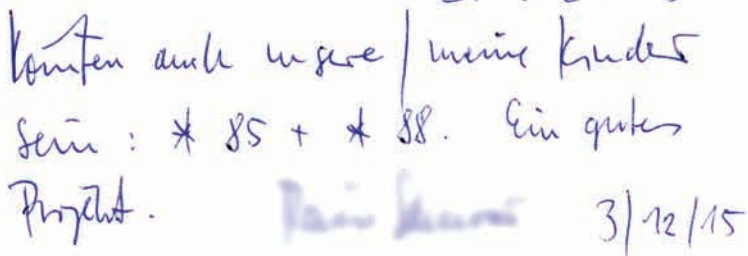 Könnten auch unsere / meine Kinder
sein : * 85 + * 88. Ein gutes
Projekt. 3/12/15